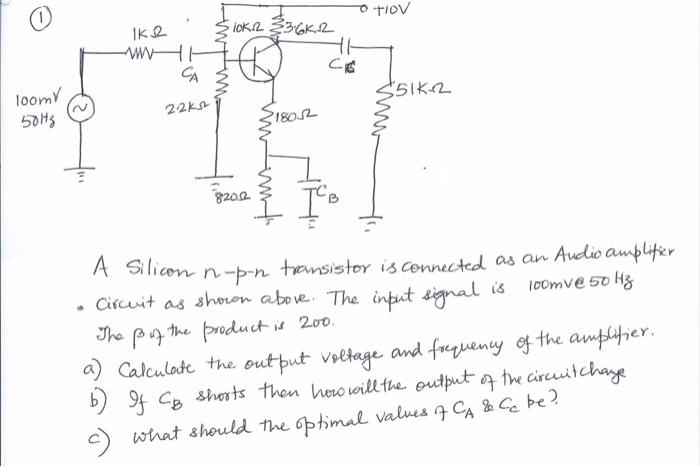 1
+10V
1KΩ
10KΩ
3.6KΩ
CA
CC
100mV
50Hz
2.2KΩ
180Ω
51KΩ
820Ω
CB
A Silicon n-p-n transistor is connected as an Audio amplifier
• Circuit as shown above. The input signal is 100mv@50Hz
The β of the product is 200.
a) Calculate the output voltage and frequency of the amplifier.
b) If CB shorts then how will the output of the circuit change
c) What should the optimal values of CA & Cc be?